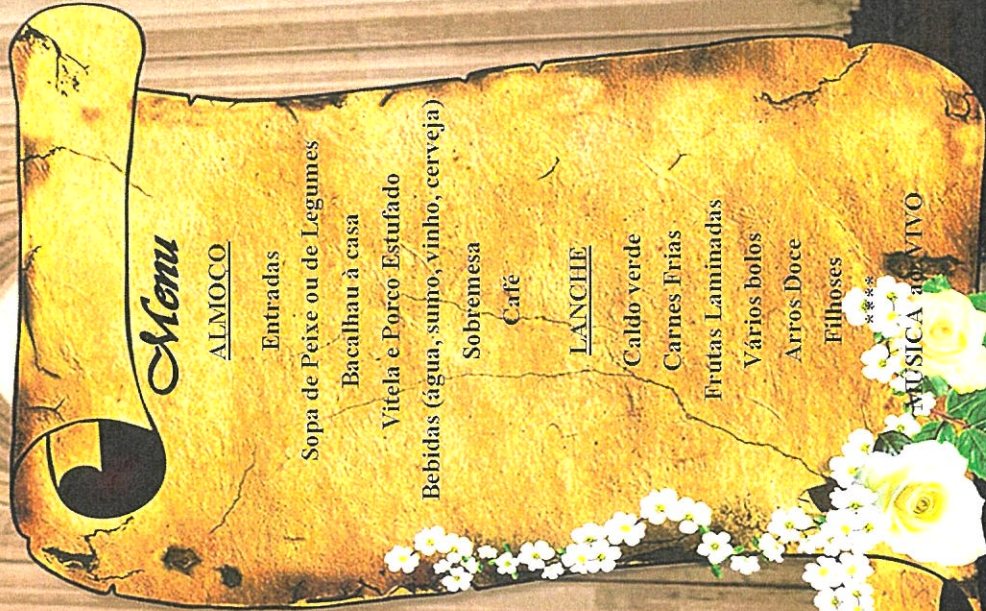 Menu
ALMOÇO
Entradas
Sopa de Peixe ou de Legumes
Bacalhau à casa
Vitela e Porco Estufado
Bebidas (água, sumo, vinho, cerveja)
Sobremesa
Café
LANCHE
Caldo verde
Carnes Frias
Frutas Laminadas
Vários bolos
Arros Doce
Filhoses
****
MÚSICA ao VIVO